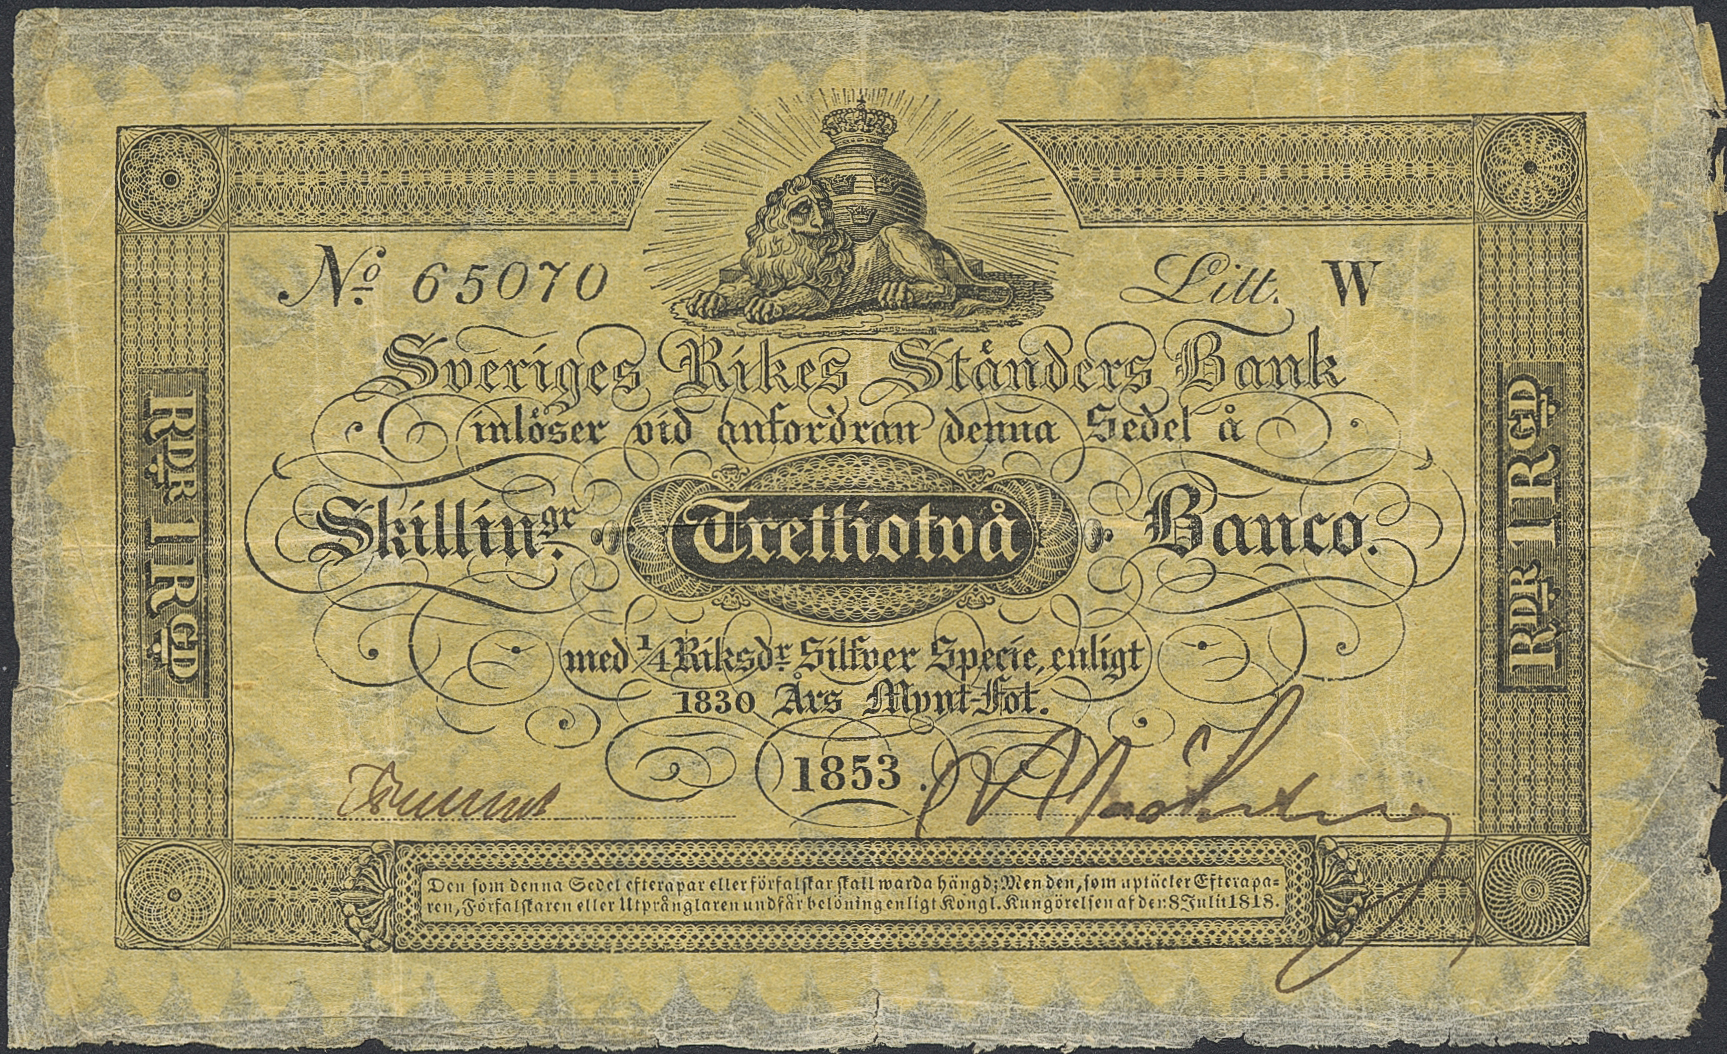 No 65070
Litt. W
Sveriges Rikes Ständers Bank
inlöser vid anfordran denna Sedel å
Skillingr Trettiotvå Banco.
med 1/4 Riksdr Silfver Specie, enligt
1830 Års Mynt-Fot.
1853.
RDR 1 RGD
RDR 1 RGD
Den som denna Sedel efterapar eller förfalskar skall warda hängd; Men den, som uptäcker Efterapa-
ren, Förfalskaren eller Utprånglaren undfår belöning enligt Kongl. Kungörelsen af den 8 Julii 1818.